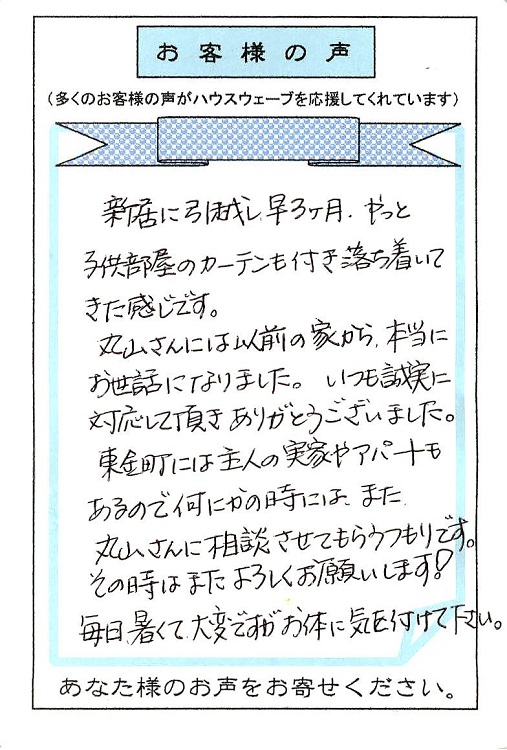 お客様の声
（多くのお客様の声がハウスウェーブを応援してくれています）
新居に引越し早3ヶ月、やっと
子供部屋のカーテンも付き落ち着いて
きた感じです。
丸山さんには以前の家から、本当に
お世話になりました。いつも誠実に
対応して頂きありがとうございました。
東金町には主人の実家やアパートも
あるので何にかの時には、また
丸山さんに相談させてもらうつもりです。
その時はまたよろしくお願いします!
毎日、暑くて、大変ですがお体に気を付けて下さい。
あなた様のお声をお寄せください。